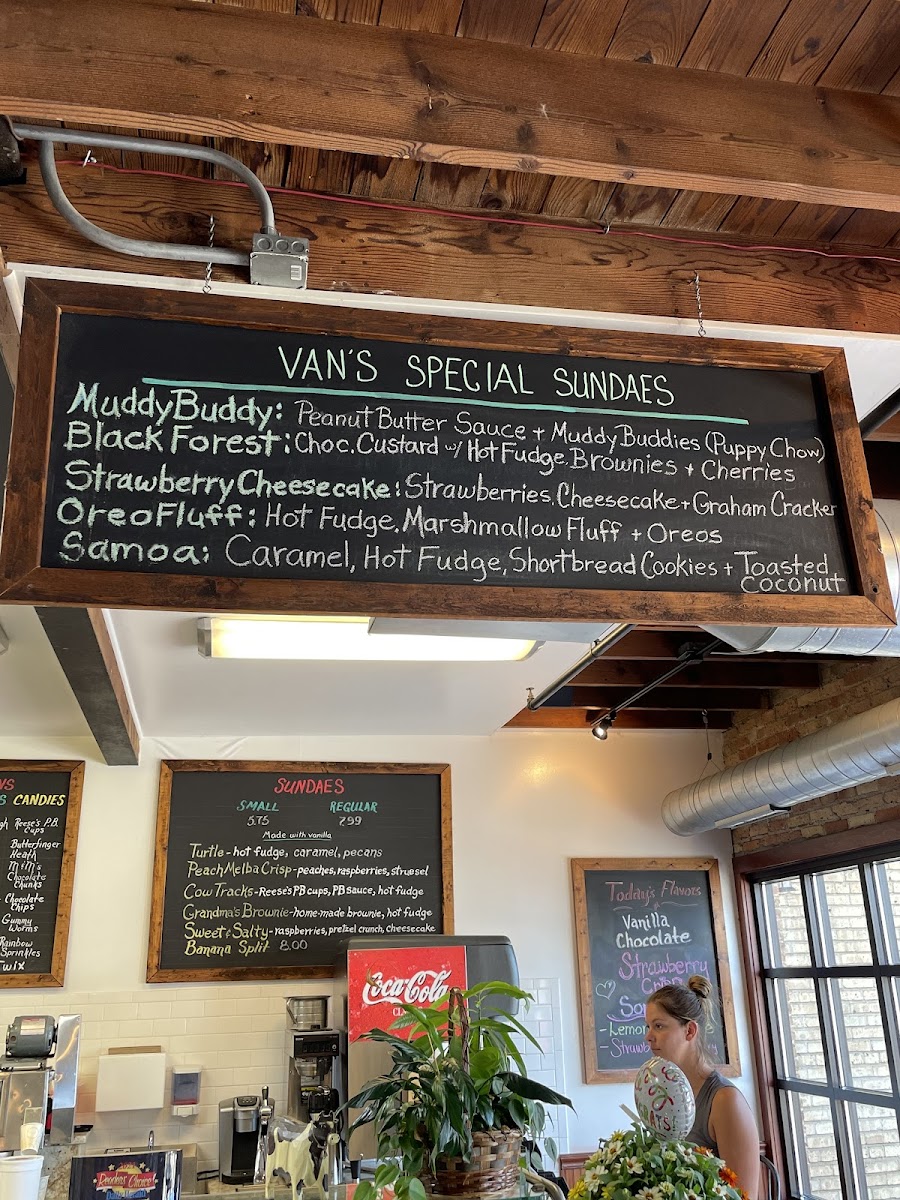 VAN'S SPECIAL SUNDAES
Muddy Buddy: Peanut Butter Sauce + Muddy Buddies (Puppy Chow)
Black Forest: Choc. Custard w/ Hot Fudge, Brownies + Cherries
Strawberry Cheesecake: Strawberries, Cheesecake + Graham Cracker
Oreo Fluff: Hot Fudge, Marshmallow Fluff + Oreos
Samoa: Caramel, Hot Fudge, Shortbread Cookies + Toasted
Coconut
CANDIES
Reese's P.B.
Cups
Butterfinger
Heath
M&M's
Chocolate
Chunks
Chocolate
Chips
Gummy
Worms
Rainbow
Sprinkles
Twix
SUNDAES
SMALL REGULAR
5.75 7.99
Made with vanilla
Turtle - hot fudge, caramel, pecans
Peach Melba Crisp - peaches, raspberries, struesel
Cow Tracks - Reese's PB cups, PB sauce, hot fudge
Grandma's Brownie - homemade brownie, hot fudge
Sweet & Salty - raspberries, pretzel crunch, cheesecake
Banana Split 8.00
Today's Flavors
Vanilla
Chocolate
Strawberry
- Lemon
- Strawb
Coca-Cola
CL
Readers Choice